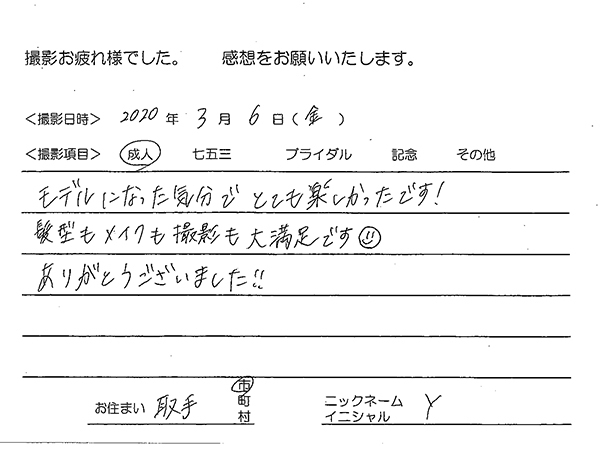 撮影お疲れ様でした。 感想をお願いいたします。
<撮影日時> 2020 年 3 月 6 日(金)
<撮影項目> 成人 七五三 ブライダル 記念 その他
モデルになった気分で とても楽しかったです!
髪型もメイクも撮影も大満足です
ありがとうございました!!
お住まい 取手 市 町 村 ニックネーム イニシャル Y